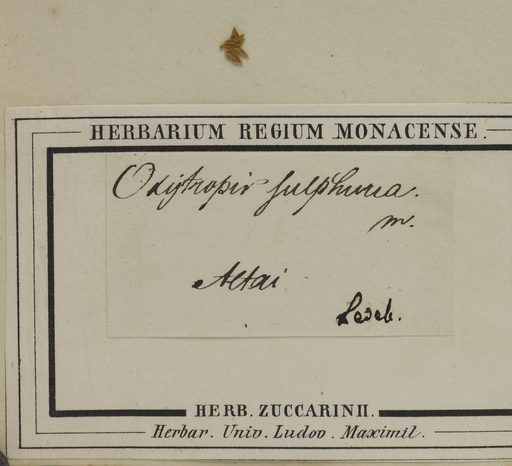 HERBARIUM REGIUM MONACENSE.
Oxytropis sulphurea.
m.
Altai
Ledeb.
HERB. ZUCCARINII.
Herbar. Univ. Ludov. Maximil.